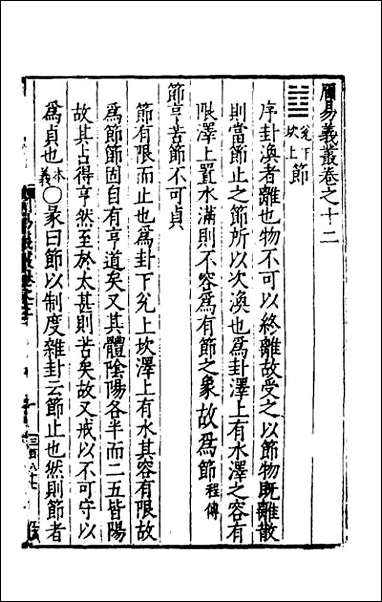 周易義叢卷之十二
兌下
坎上
節
序卦渙者離也物不可以終離故受之以節物既離散
則當節止之節所以次渙也為卦澤上有水澤之容有
限澤上置水滿則不容為有節之象故為節程傳
節亨苦節不可貞
節有限而止也為卦下兌上坎澤上有水其容有限故
為節節固自有亨道矣又其體陰陽各半而二五皆陽
故其占得亨然至於太甚則苦矣故又戒以不可守以
為貞也本義○彖曰節以制度雜卦云節止也然則節者